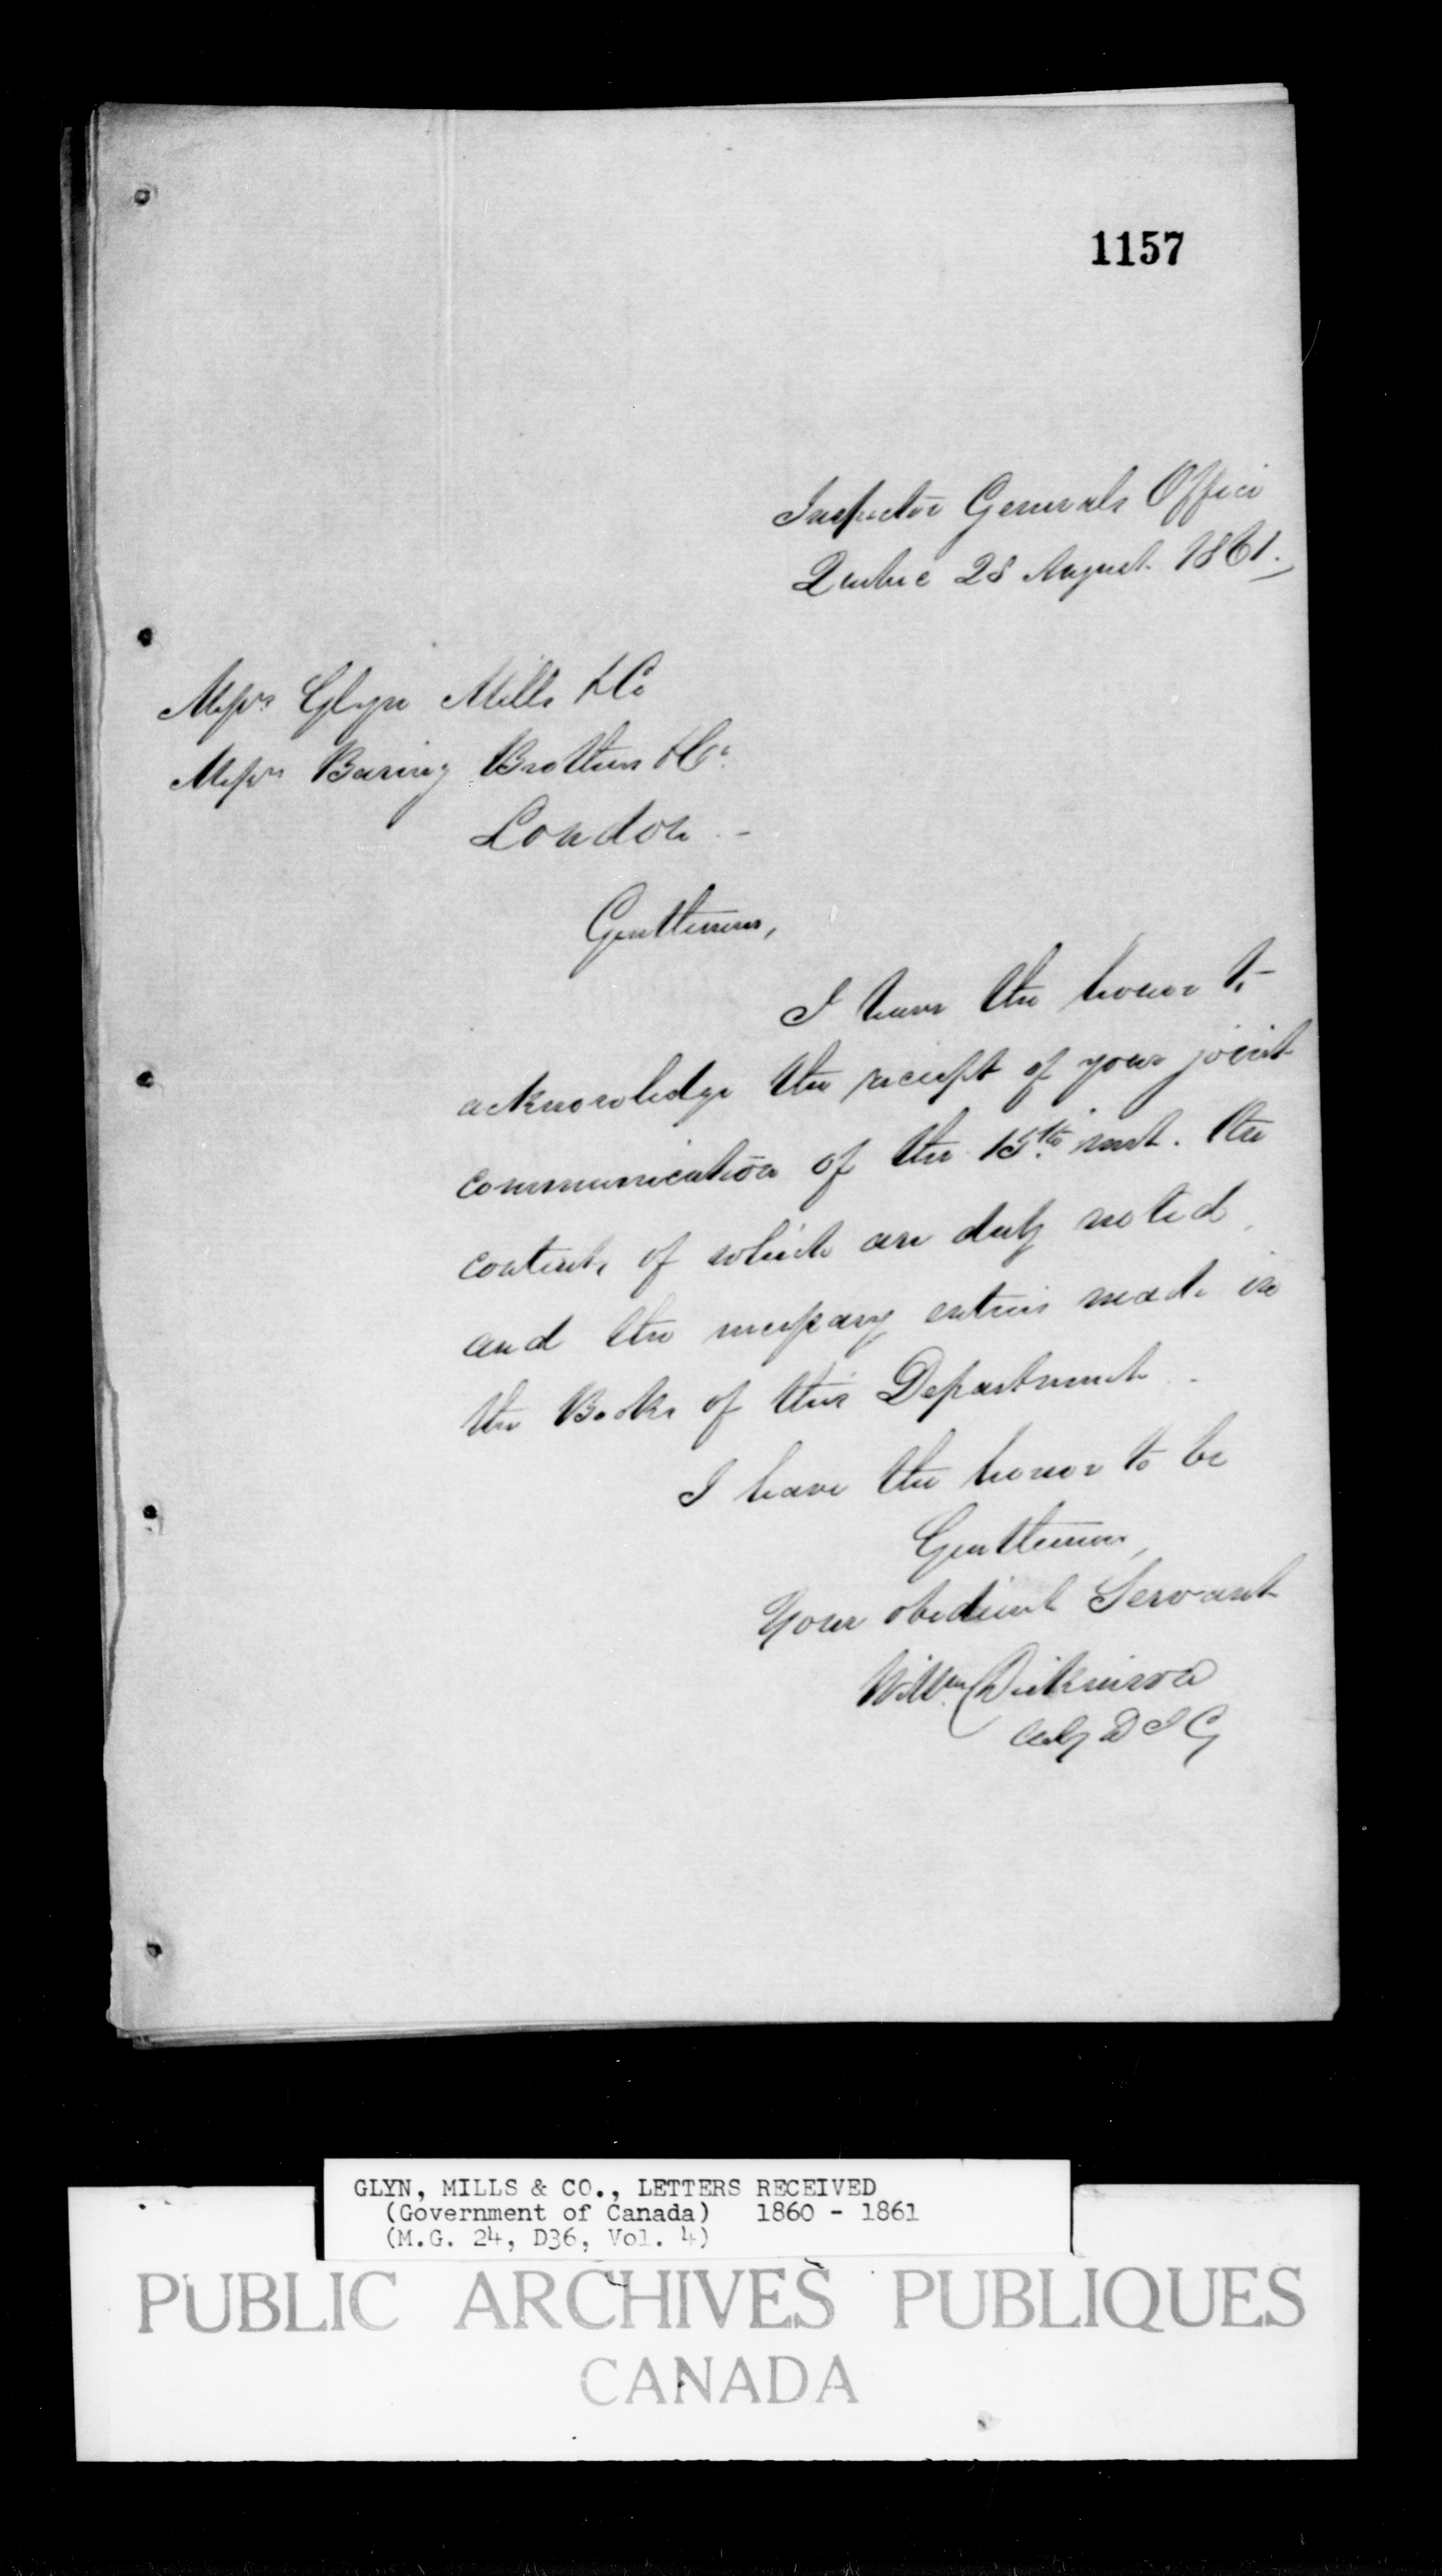 1157
Inspector Generals Office
Quebec 28 August 1861.
Messrs Glyn Mills & Co
Messrs Baring Brothers & Co.
London -
Gentlemen,
I have the honor to
acknowledge the receipt of your joint
communication of the 15th inst. the
contents of which are duly noted
and the necessary entries made in
the Books of this Department -
I have the honor to be
Gentlemen,
Your obedient Servant
Wm Dickinson
Actg D I G
GLYN, MILLS & CO., LETTERS RECEIVED
(Government of Canada) 1860 - 1861
(M.G. 24, D36, Vol. 4)
PUBLIC ARCHIVES PUBLIQUES
CANADA